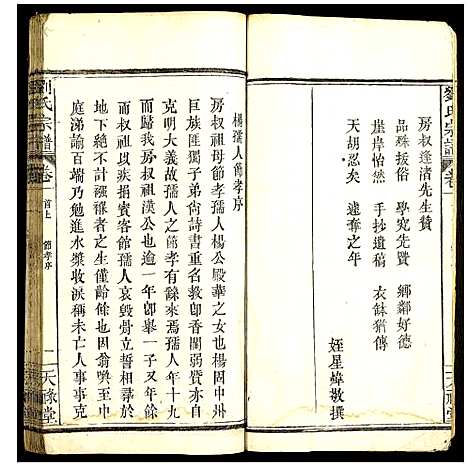 劉氏宗譜
卷
房叔逢渚先生贊
品殊扳俗　學究先賢　鄉鄰好德
崖岸怡然　手抄遺稿　衣缽猶傳
天胡忍矣　遽奪之年
姪星煒敬撰
楊孺人節孝序
房叔祖母節孝楊公殿華之女也楊固中州
巨族匪獨子弟尚詩書重名教卽香閨弱質亦自
克明大義故孺人之節孝有餘來焉孺人年十九
而歸我房叔祖漢公也逾一年卽舉一子又年餘
叔祖以疾捐賓客館孺人哀毀骨立屏棄
地下絶不計襁褓者之生僅齡餘也因舅嗚至中
庭涕諭百端乃勉進水漿收淚稱未亡人事事克
劉氏宗譜
卷
首上
節孝序
一
天祿堂